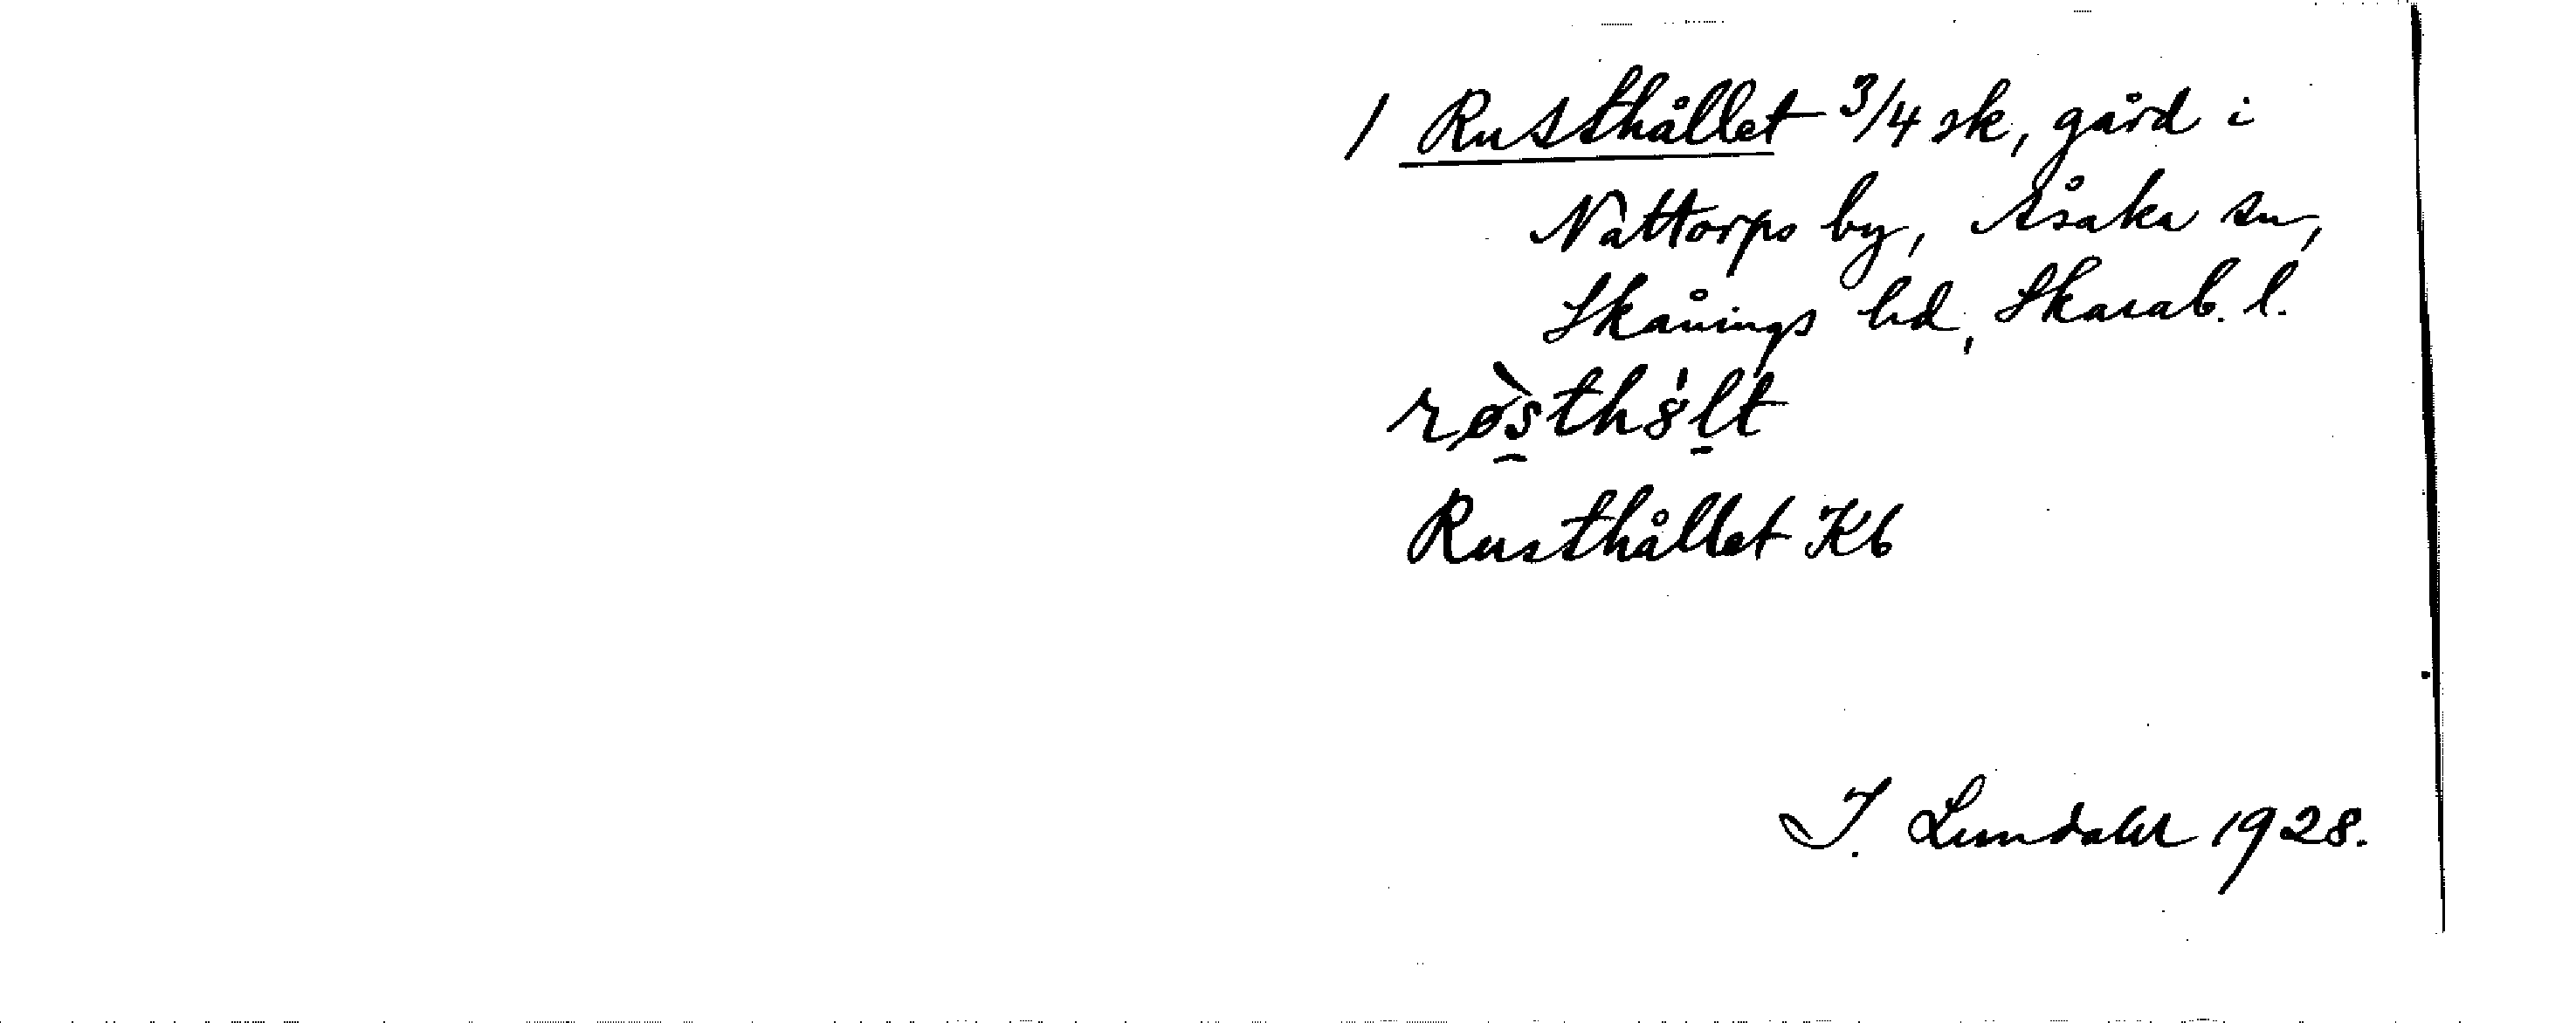 / Rusthållet 3/4 sk, gård i
Nattorps by, Åsaka sn,
Skånings hd, Skarab. l.
Rusthållet Kb
I. Lundahl 1928.